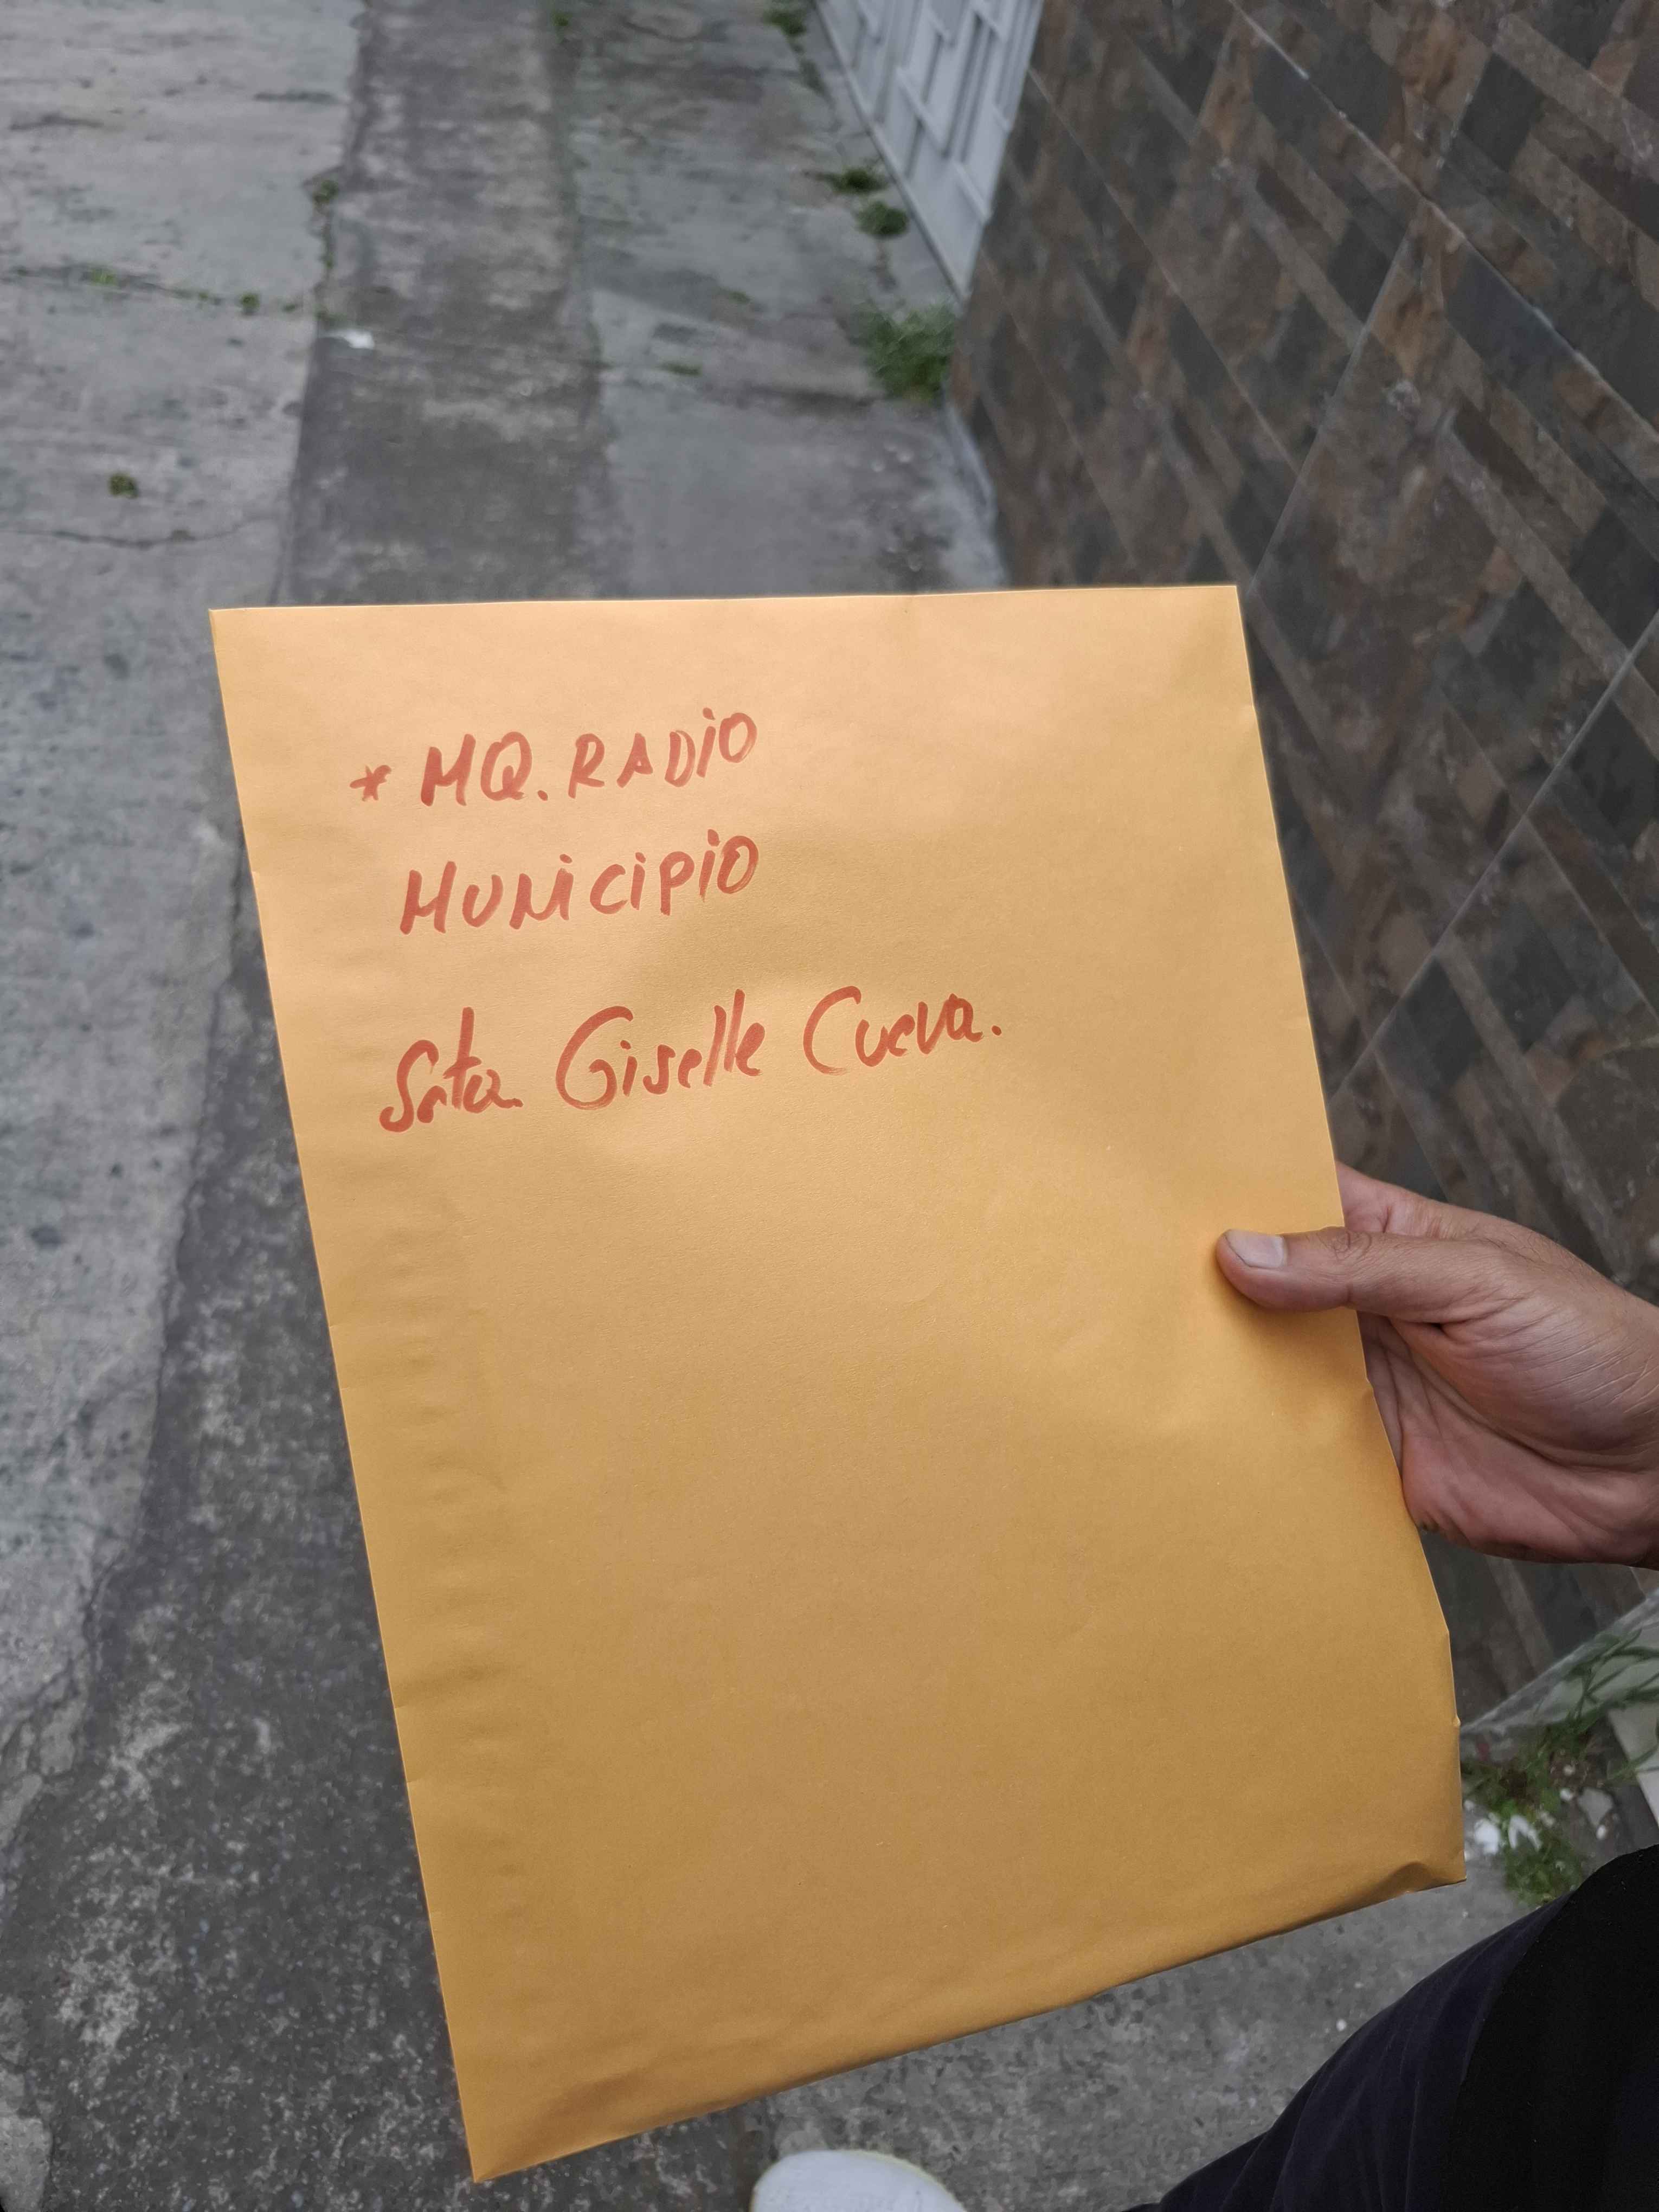 * MQ. RADiO
MUNiCiPiO
Srta. Giselle Cueva.